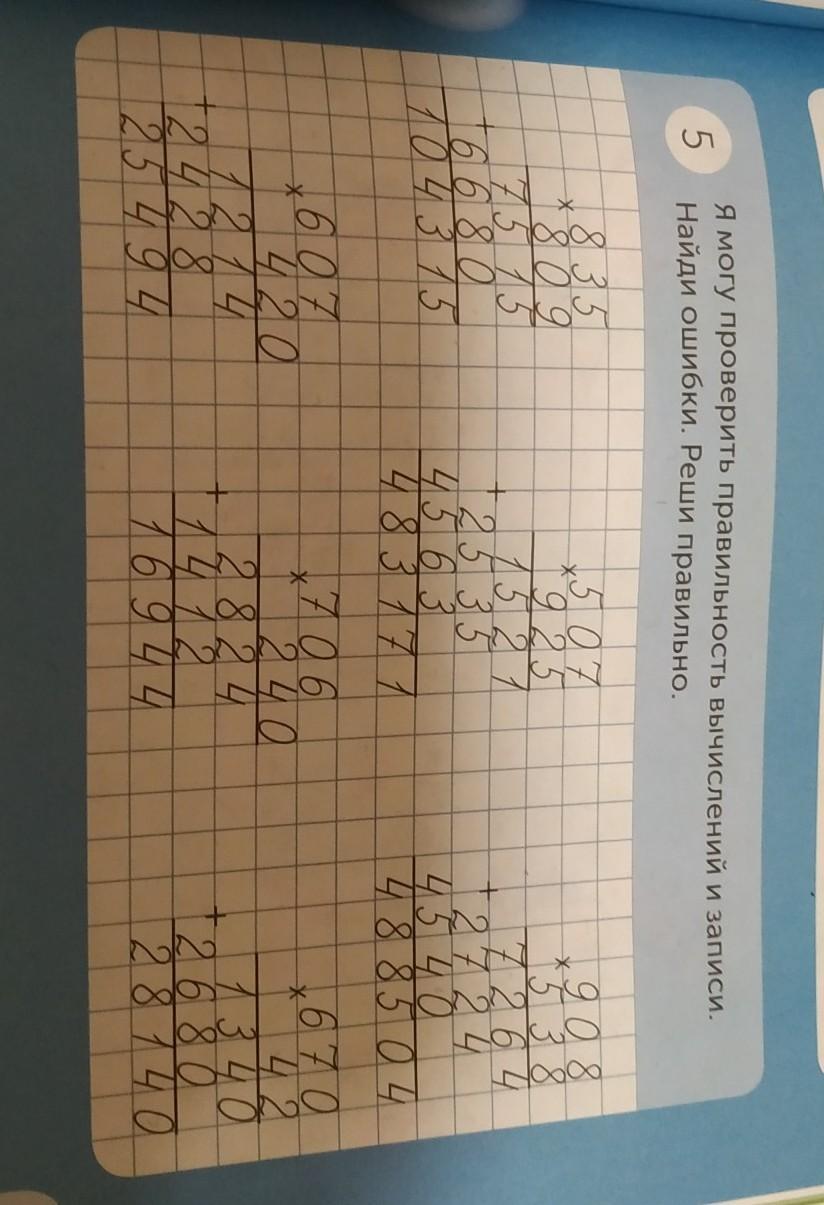 5
Я могу проверить правильность вычислений и записи.
Найди ошибки. Реши правильно.
835
× 809
7515
+ 6680
104315
507
× 925
1521
+ 2535
4563
483171
908
× 538
7264
+ 2724
4540
488504
607
× 420
1214
+ 2428
25494
706
× 240
2824
+ 1412
16944
670
× 42
1340
+ 2680
28140